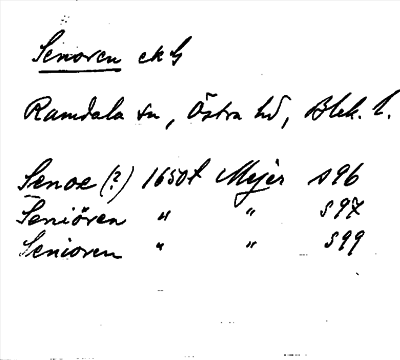 Senoren ek G
Ramdala sn, Östra hd, Blek. l.
Senoe (?) 1650t Mejer s 96
Seniören " " s 97
Senioren " " s 99